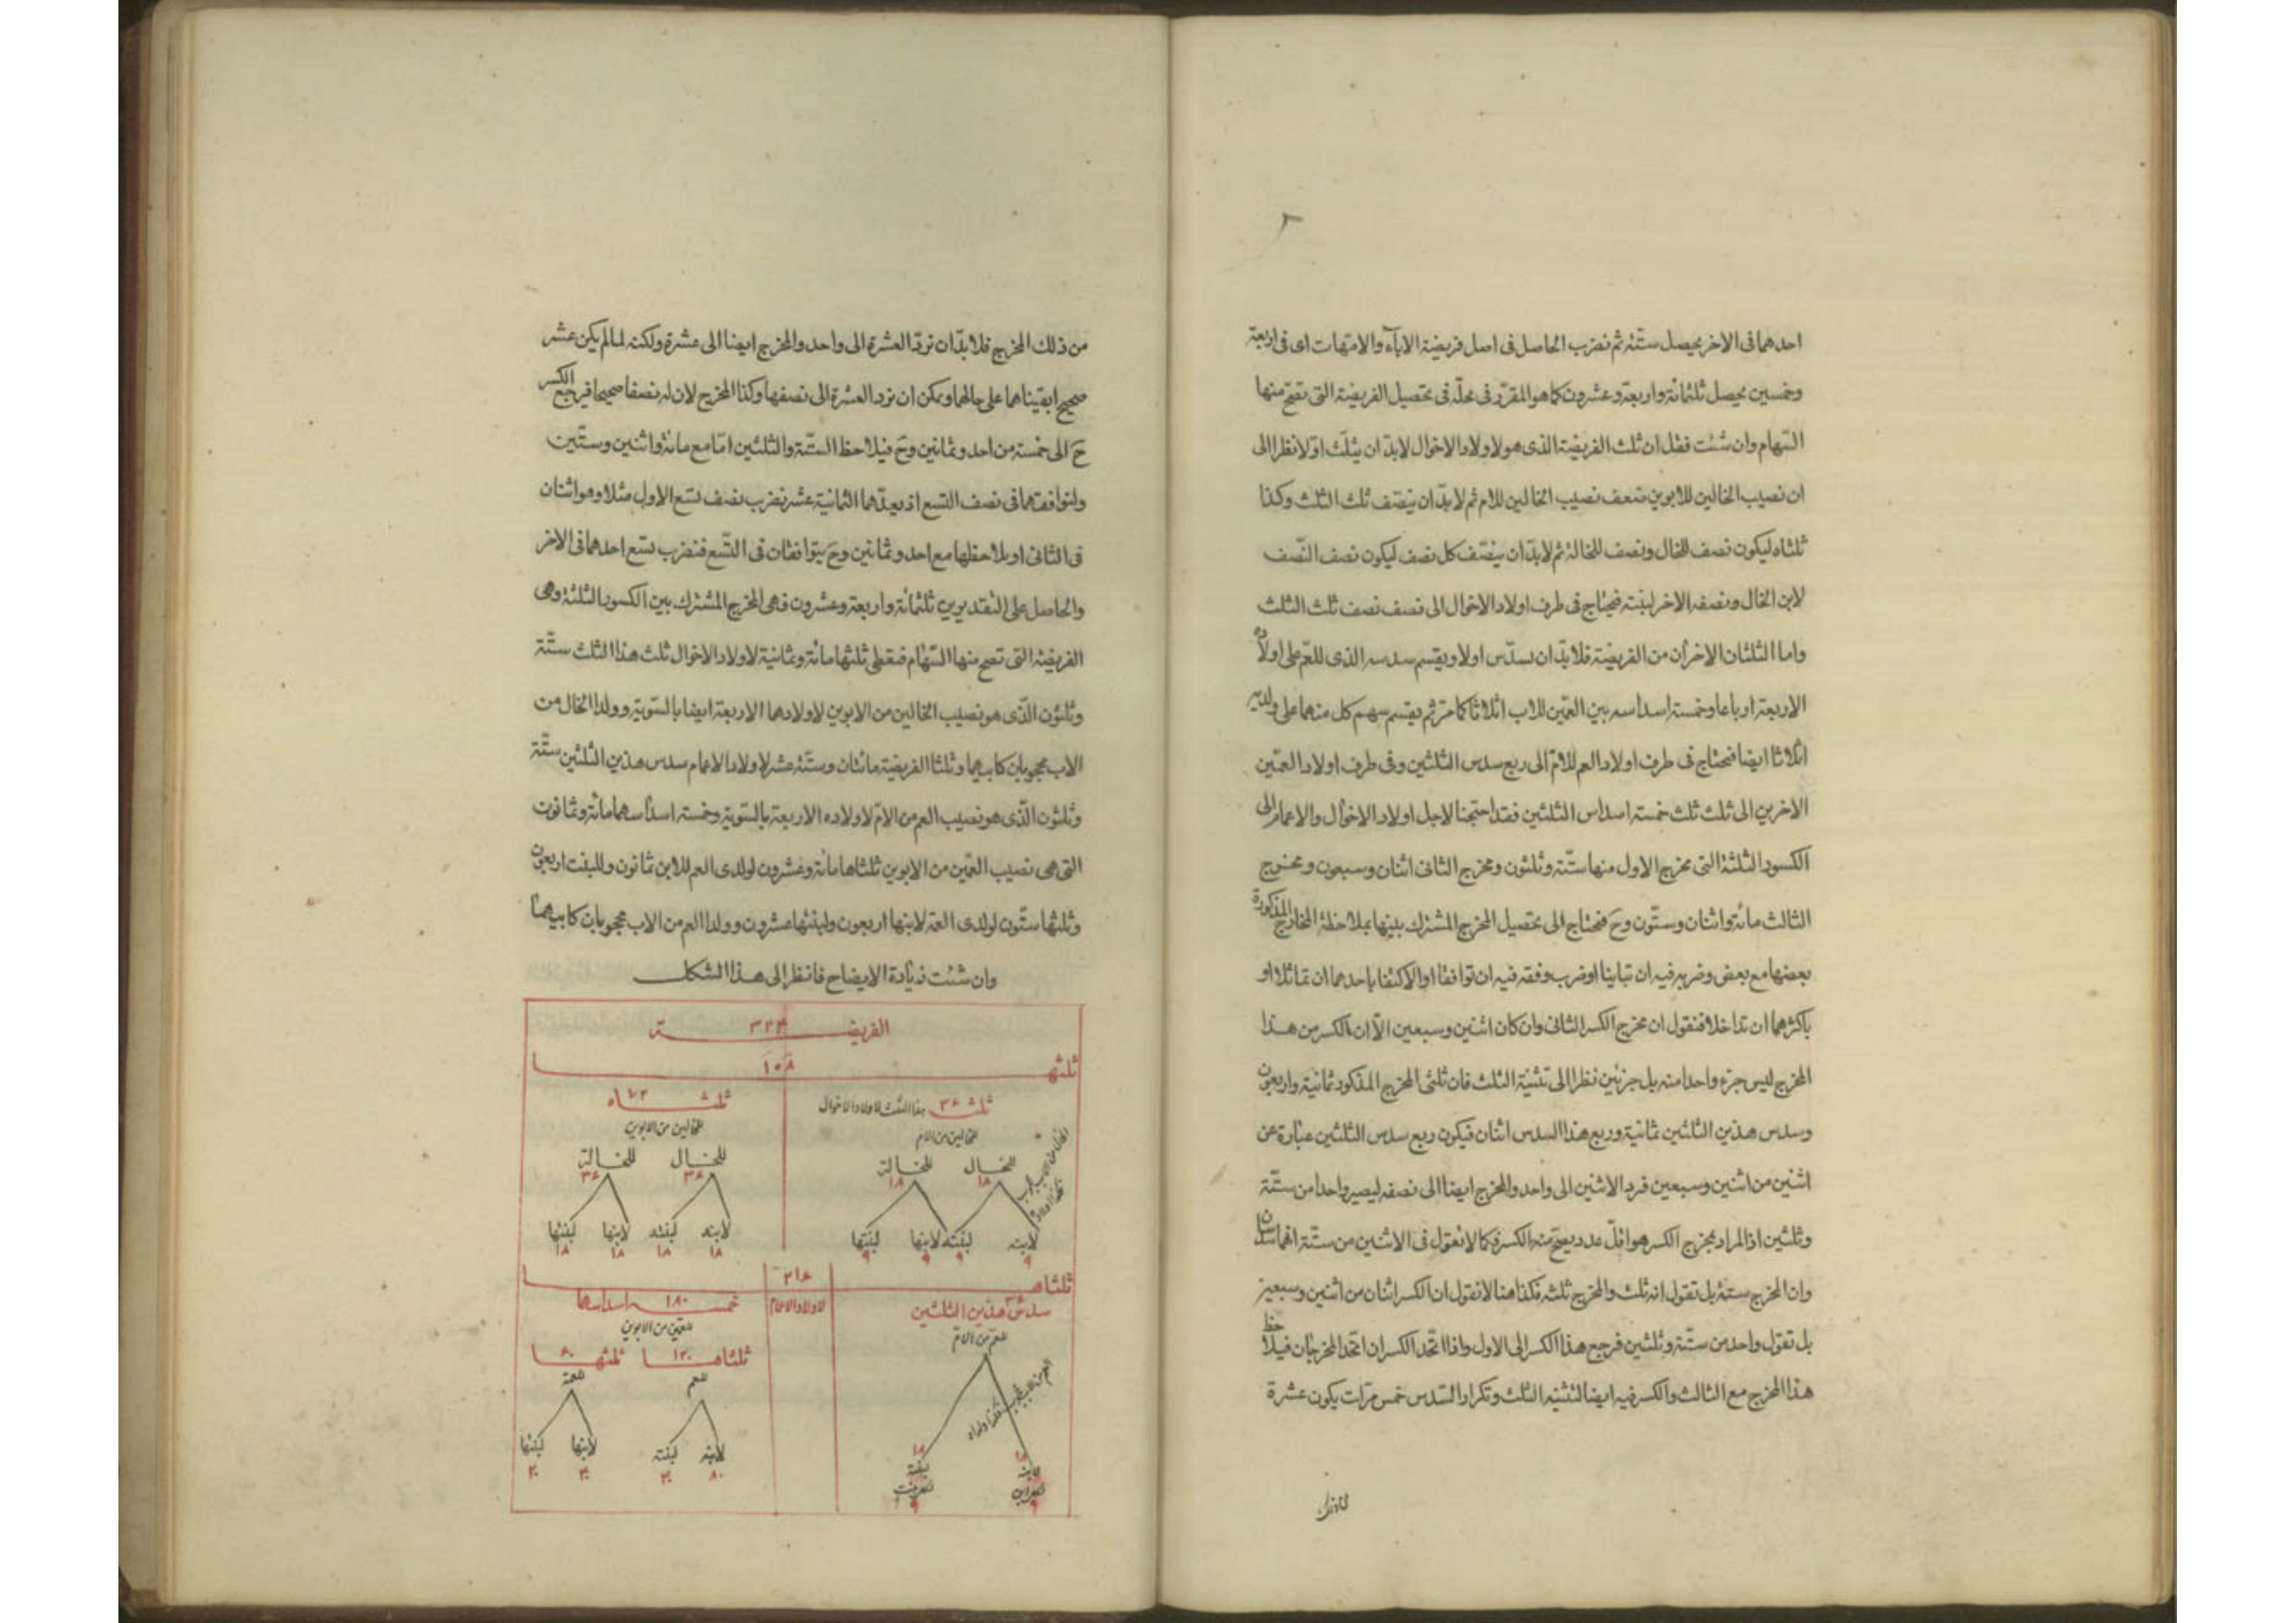 ٢
احدهما فى الاخر يحصل ستّة ثم نضرب الحاصل فى اصل فريضة الاباء والامهات اى فى اربعة
وخمسين يحصل ثلثمائة واربعة وعشرون كما هو المقرّر فى محلّه فى تحصيل الفريضة التى تصحّ منها
السّهام وان شئت فقل ان ثلث الفريضة الذى هو لاولاد الاخوال لابدّ ان يثلّث اوّلا نظرا الى
ان نصيب الخالين للابوين ضعف نصيب الخالين للام ثم لابدّ ان ينصّف ثلث الثلث وكذا
ثلثاه ليكون نصف للخال ونصف للخالة ثم لابدّ ان ينصّف كل نصف ليكون نصف النّصف
لابن الخال ونصفه الاخر لبنته فيحتاج فى طرف اولاد الاخوال الى نصف نصف ثلث الثلث
واما الثلثان الاخران من الفريضة فلابدّ ان يسدّس اولا ويقسم سدسه الذى للعم على اولاده
الاربعة ارباعا وخمسة اسداسه بين العمّين للاب اثلاثا كما مرّ ثم يقسم سهم كل منهما على ولديه
اثلاثا ايضا فيحتاج فى طرف اولاد العم للامّ الى ربع سدس الثلثين وفى طرف اولاد العمّين
الاخرين الى ثلث ثلث خمسة اسداس الثلثين فقد احتجنا لاجل اولاد الاخوال والاعمام الى
الكسور الثلثة التى مخرج الاول منها ستّة وثلثون ومخرج الثانى اثنان وسبعون ومخرج
الثالث مائة واثنان وستّون وحَ فيحتاج الى تحصيل المخرج المشترك بينها بملاحظة المخارج المذكورة
بعضها مع بعض وضربه فيه ان تباينا او ضرب وفقه فيه ان توافقا او الاكتفا باحدهما ان تماثلا او
باكثرهما ان تداخلا فنقول ان مخرج الكسر الثانى وان كان اثنين وسبعين الّا ان الكسر من هذا
المخرج ليس جزء واحدا منه بل جزئين نظرا الى تثنية الثلث فان ثلثى المخرج المذكور ثمانية واربعون
وسدس هذين الثلثين ثمانية وربع هذا السدس اثنان فيكون ربع سدس الثلثين عبارة عن
اثنين من اثنين وسبعين فردّ الاثنين الى واحد والمخرج ايضا الى نصفه ليصير واحدا من ستّة
وثلثين اذ المراد بمخرج الكسر هو اقلّ عدد يصحّ منه الكسر فكما لا نقول فى الاثنين من ستّة انهما سدسان
وان المخرج ستة بل تقول انه ثلث والمخرج ثلثه فكذا هنا لا نقول ان الكسر اثنان من اثنين وسبعين
بل تقول واحد من ستّة وثلثين فرجع هذا الكسر الى الاول واذا اتّحد الكسران اتّحد المخرجان فيلاحظ
هذا المخرج مع الثالث والكسر فيه ايضا لتثنية الثلث وتكرار السّدس خمس مرّات يكون عشرة
من ذلك المخرج فلابدّ ان نردّ العشرة الى واحد والمخرج ايضا الى عشرة ولكنه لما لم يكن عشر
صحيح ابقيناهما على حالهما ويمكن ان نردّ العشرة الى نصفها وكذا المخرج لان له نصفا صحيحا فيرجع الكسر
حَ الى خمسة من احد وثمانين وحَ فيلاحظ الستّة والثلثين امّا مع مائة واثنين وستّين
ولتوافقهما فى نصف التسع اذ يعدّهما الثمانية عشر نضرب نصف تسع الاول مثلا وهو اثنان
فى الثانى او يلاحظها مع احد وثمانين وحَ يتوافقان فى التّسع فنضرب تسع احدهما فى الاخر
والحاصل على التقديرين ثلثمائة واربعة وعشرون فهى المخرج المشترك بين الكسور الثلثة وهى
الفريضة التى تصح منها السّهام فنعطى ثلثها مائة وثمانية لاولاد الاخوال ثلث هذا الثلث ستّة
وثلثون الّذى هو نصيب الخالين من الابوين لاولادهما الاربعة ايضا بالسّوية وولدا الخال من
الاب محجوبان كابيهما وثلثا الفريضة مائتان وستّة عشر لاولاد الاعمام سدس هذين الثلثين ستّة
وثلثون الّذى هو نصيب العم من الامّ لاولاده الاربعة بالسّوية وخمسة اسداسهما مائة وثمانون
التى هى نصيب العمّين من الابوين ثلثاها مائة وعشرون لولدى العم للابن ثمانون وللبنت اربعون
وثلثها ستّون لولدى العمّة لابنها اربعون ولبنتها عشرون وولدا العم من الاب محجوبان كابيهما
وان شئت زيادة الايضاح فانظر الى هذا الشكل
الفريضة ٣٢٤
ثلثها ١٠٨
ثلث ٣٦ هذا الثلث لاولاد الاخوال
ثلثاه ٧٢
للخالين من الام
للخالين من الابوين
للخال ١٨ للخالة ١٨
للخال ٣٦ للخالة ٣٦
لابنه ٩ لبنته ٩ لابنها ٩ لبنتها ٩
لابنه ١٨ لبنته ١٨ لابنها ١٨ لبنتها ١٨
ثلثاها ٢١٦
لاولاد الاعمام
سدس هذين الثلثين ٣٦
خمسة اسداسها ١٨٠
للعم من الامّ
للعمّين من الابوين
ثلثاها ١٢٠ ثلثها ٦٠
للعم للعمة
لابنه ١٨ لبنته ١٨
لابنه ٨٠ لبنته ٤٠ لابنها ٤٠ لبنتها ٢٠